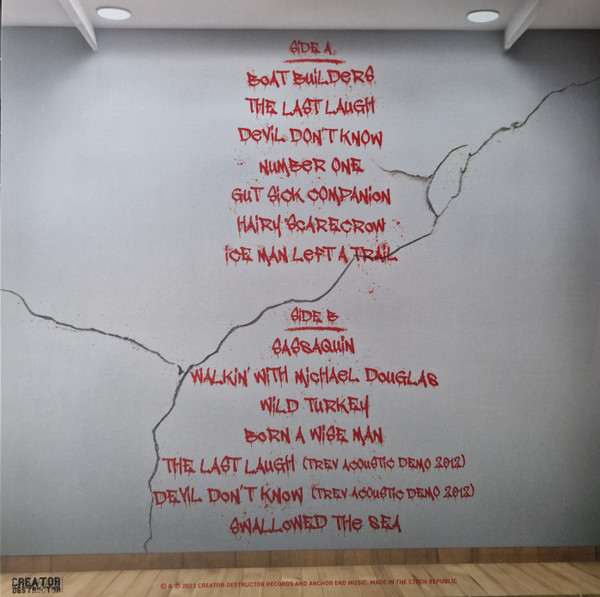 SIDE A.
BOAT BUILDERS
THE LAST LAUGH
DEVIL DON'T KNOW
NUMBER ONE
GUT SICK COMPANION
HAIRY SCARECROW
ICE MAN LEFT A TRAIL
SIDE B
SASSAQUIN
WALKIN' WITH MICHAEL DOUGLAS
WILD TURKEY
BORN A WISE MAN
THE LAST LAUGH (TREV ACOUSTIC DEMO 2012)
DEVIL DON'T KNOW (TREV ACOUSTIC DEMO 2012)
SWALLOWED THE SEA
CREATOR
DESTRUCTOR
© & ℗ 2023 CREATOR-DESTRUCTOR RECORDS AND ANCHOR END MUSIC. MADE IN THE CZECH REPUBLIC